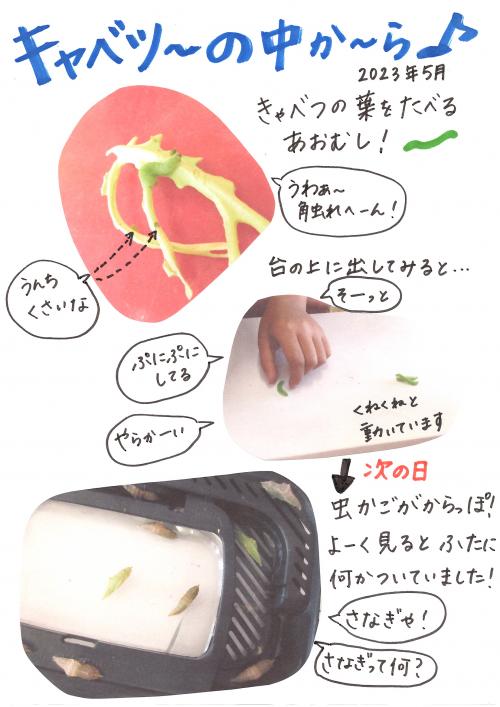 キャベツ〜の中か〜ら♪
2023年5月
きゃべつの葉をたべる
あおむし!
うわぁ〜
触れへーん!
うんち
くさいな
台の上に出してみると…
そーっと
ぷにぷに
してる
やらかーい
くねくねと
動いています
次の日
虫かごがからっぽ!
よーく見るとふたに
何かついていました!
さなぎや!
さなぎって何?